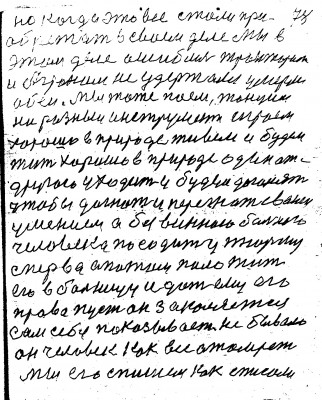 но когда это все стали при- 74
обретать в своем деле мы в
этом деле ошиблись
и не удержали умерли
оба. Мы тоже поем, танцуем
на разный инструмент играем
хорошо в природе живем и будем
жить хорошо в природе один от
другого уходит и будем догонять
чтобы догнать и перегнать своим
умением а безвинного больного
человека посодит у тюрму
сперва а потом положит
его в больницу и дать ему его
права пуст он закаляется
сам себя показывает не бывало
он человек как все
мы его спишем как списали